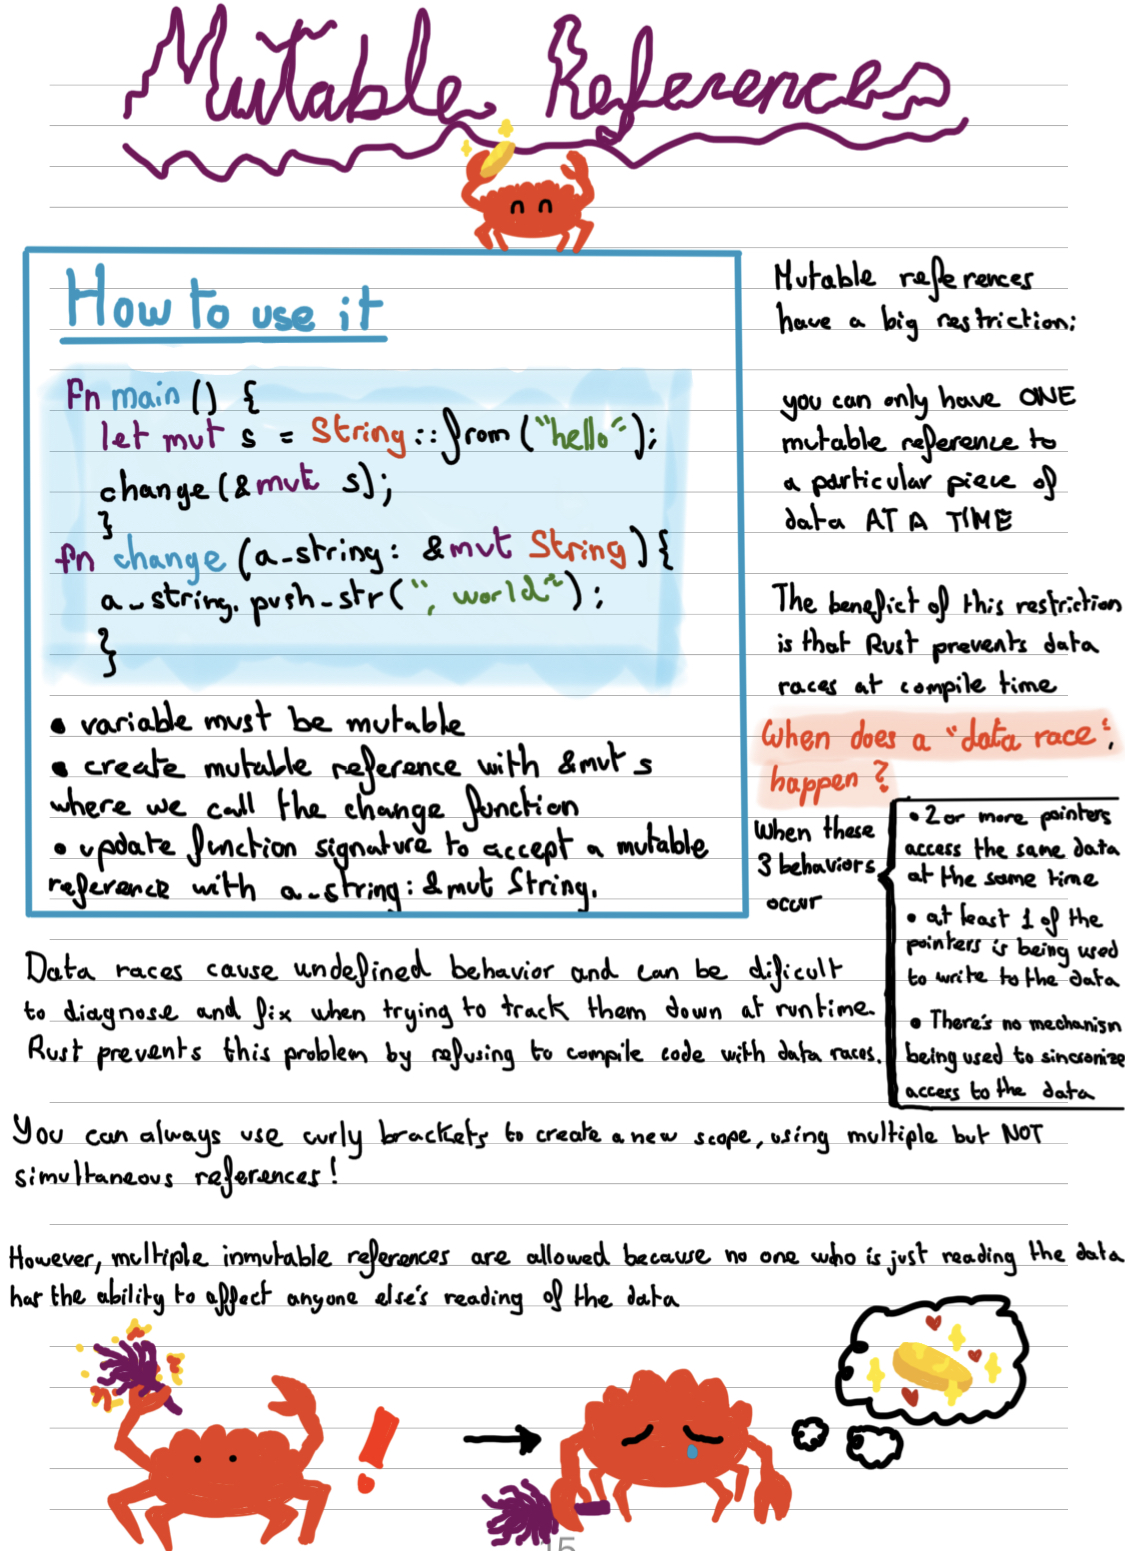 Mutable References
How to use it
fn main () {
let mut s = String::from ("hello");
change (&mut s);
}
fn change (a_string: &mut String) {
a_string.push_str (", world");
}
• variable must be mutable
• create mutable reference with &mut s
where we call the change function
• update function signature to accept a mutable
reference with a_string: &mut String.
Mutable references
have a big restriction:
you can only have ONE
mutable reference to
a particular piece of
data AT A TIME
The benefict of this restriction
is that Rust prevents data
races at compile time
When does a "data race",
happen?
When these
3 behaviors
occur
• 2 or more pointers
access the same data
at the same time
• at least 1 of the
pointers is being used
to write to the data
• There's no mechanism
being used to sincronize
access to the data
Data races cause undefined behavior and can be dificult
to diagnose and fix when trying to track them down at runtime.
Rust prevents this problem by refusing to compile code with data races.
You can always use curly brackets to create a new scope, using multiple but NOT
simultaneous references!
However, multiple inmutable references are allowed because no one who is just reading the data
has the ability to affect anyone else's reading of the data
15